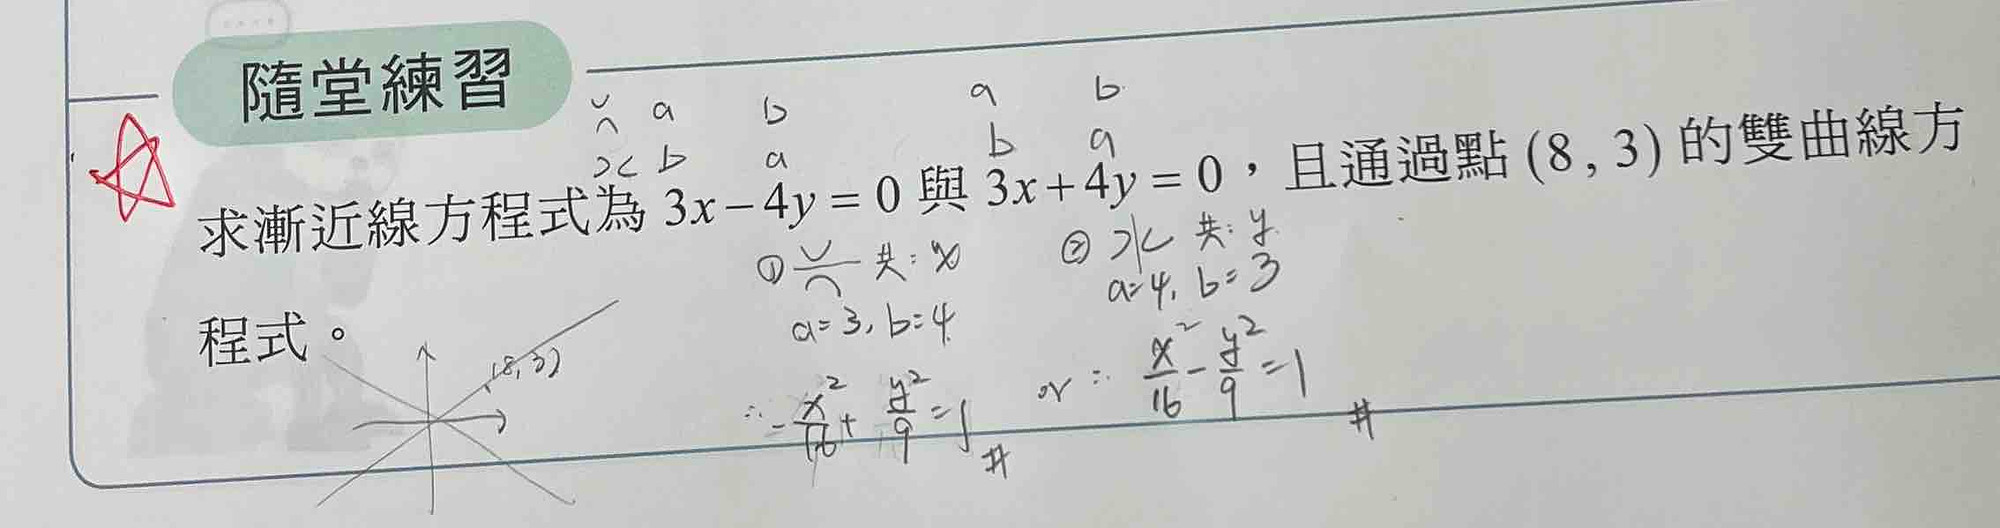 隨堂練習
a b a b
b a b a
求漸近線方程式為 3x－4y＝0 與 3x＋4y＝0，且通過點 (8 , 3) 的雙曲線方
① 共：x ② 共：y
a=3, b=4 a=4, b=3
程式。
(8,3)
∴ -x²/16 + y²/9 = 1 # or ∴ x²/16 - y²/9 = 1 #